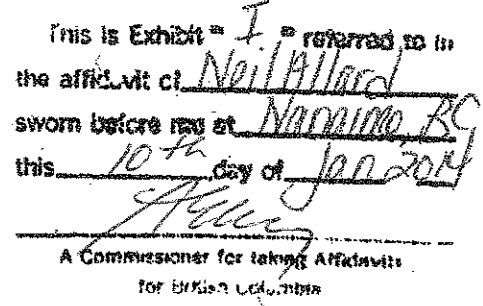 This is Exhibit "I" referred to in
the affidavit of Neil Allard
sworn before me at Nanaimo, BC
this 10th day of Jan 2014
A Commissioner for taking Affidavits
for British Columbia